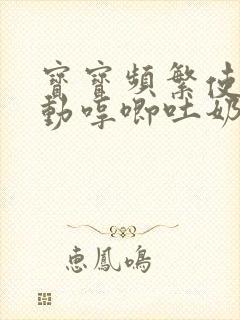 寶寶頻繁使
動哼唧吐奶
惠鳳鳴